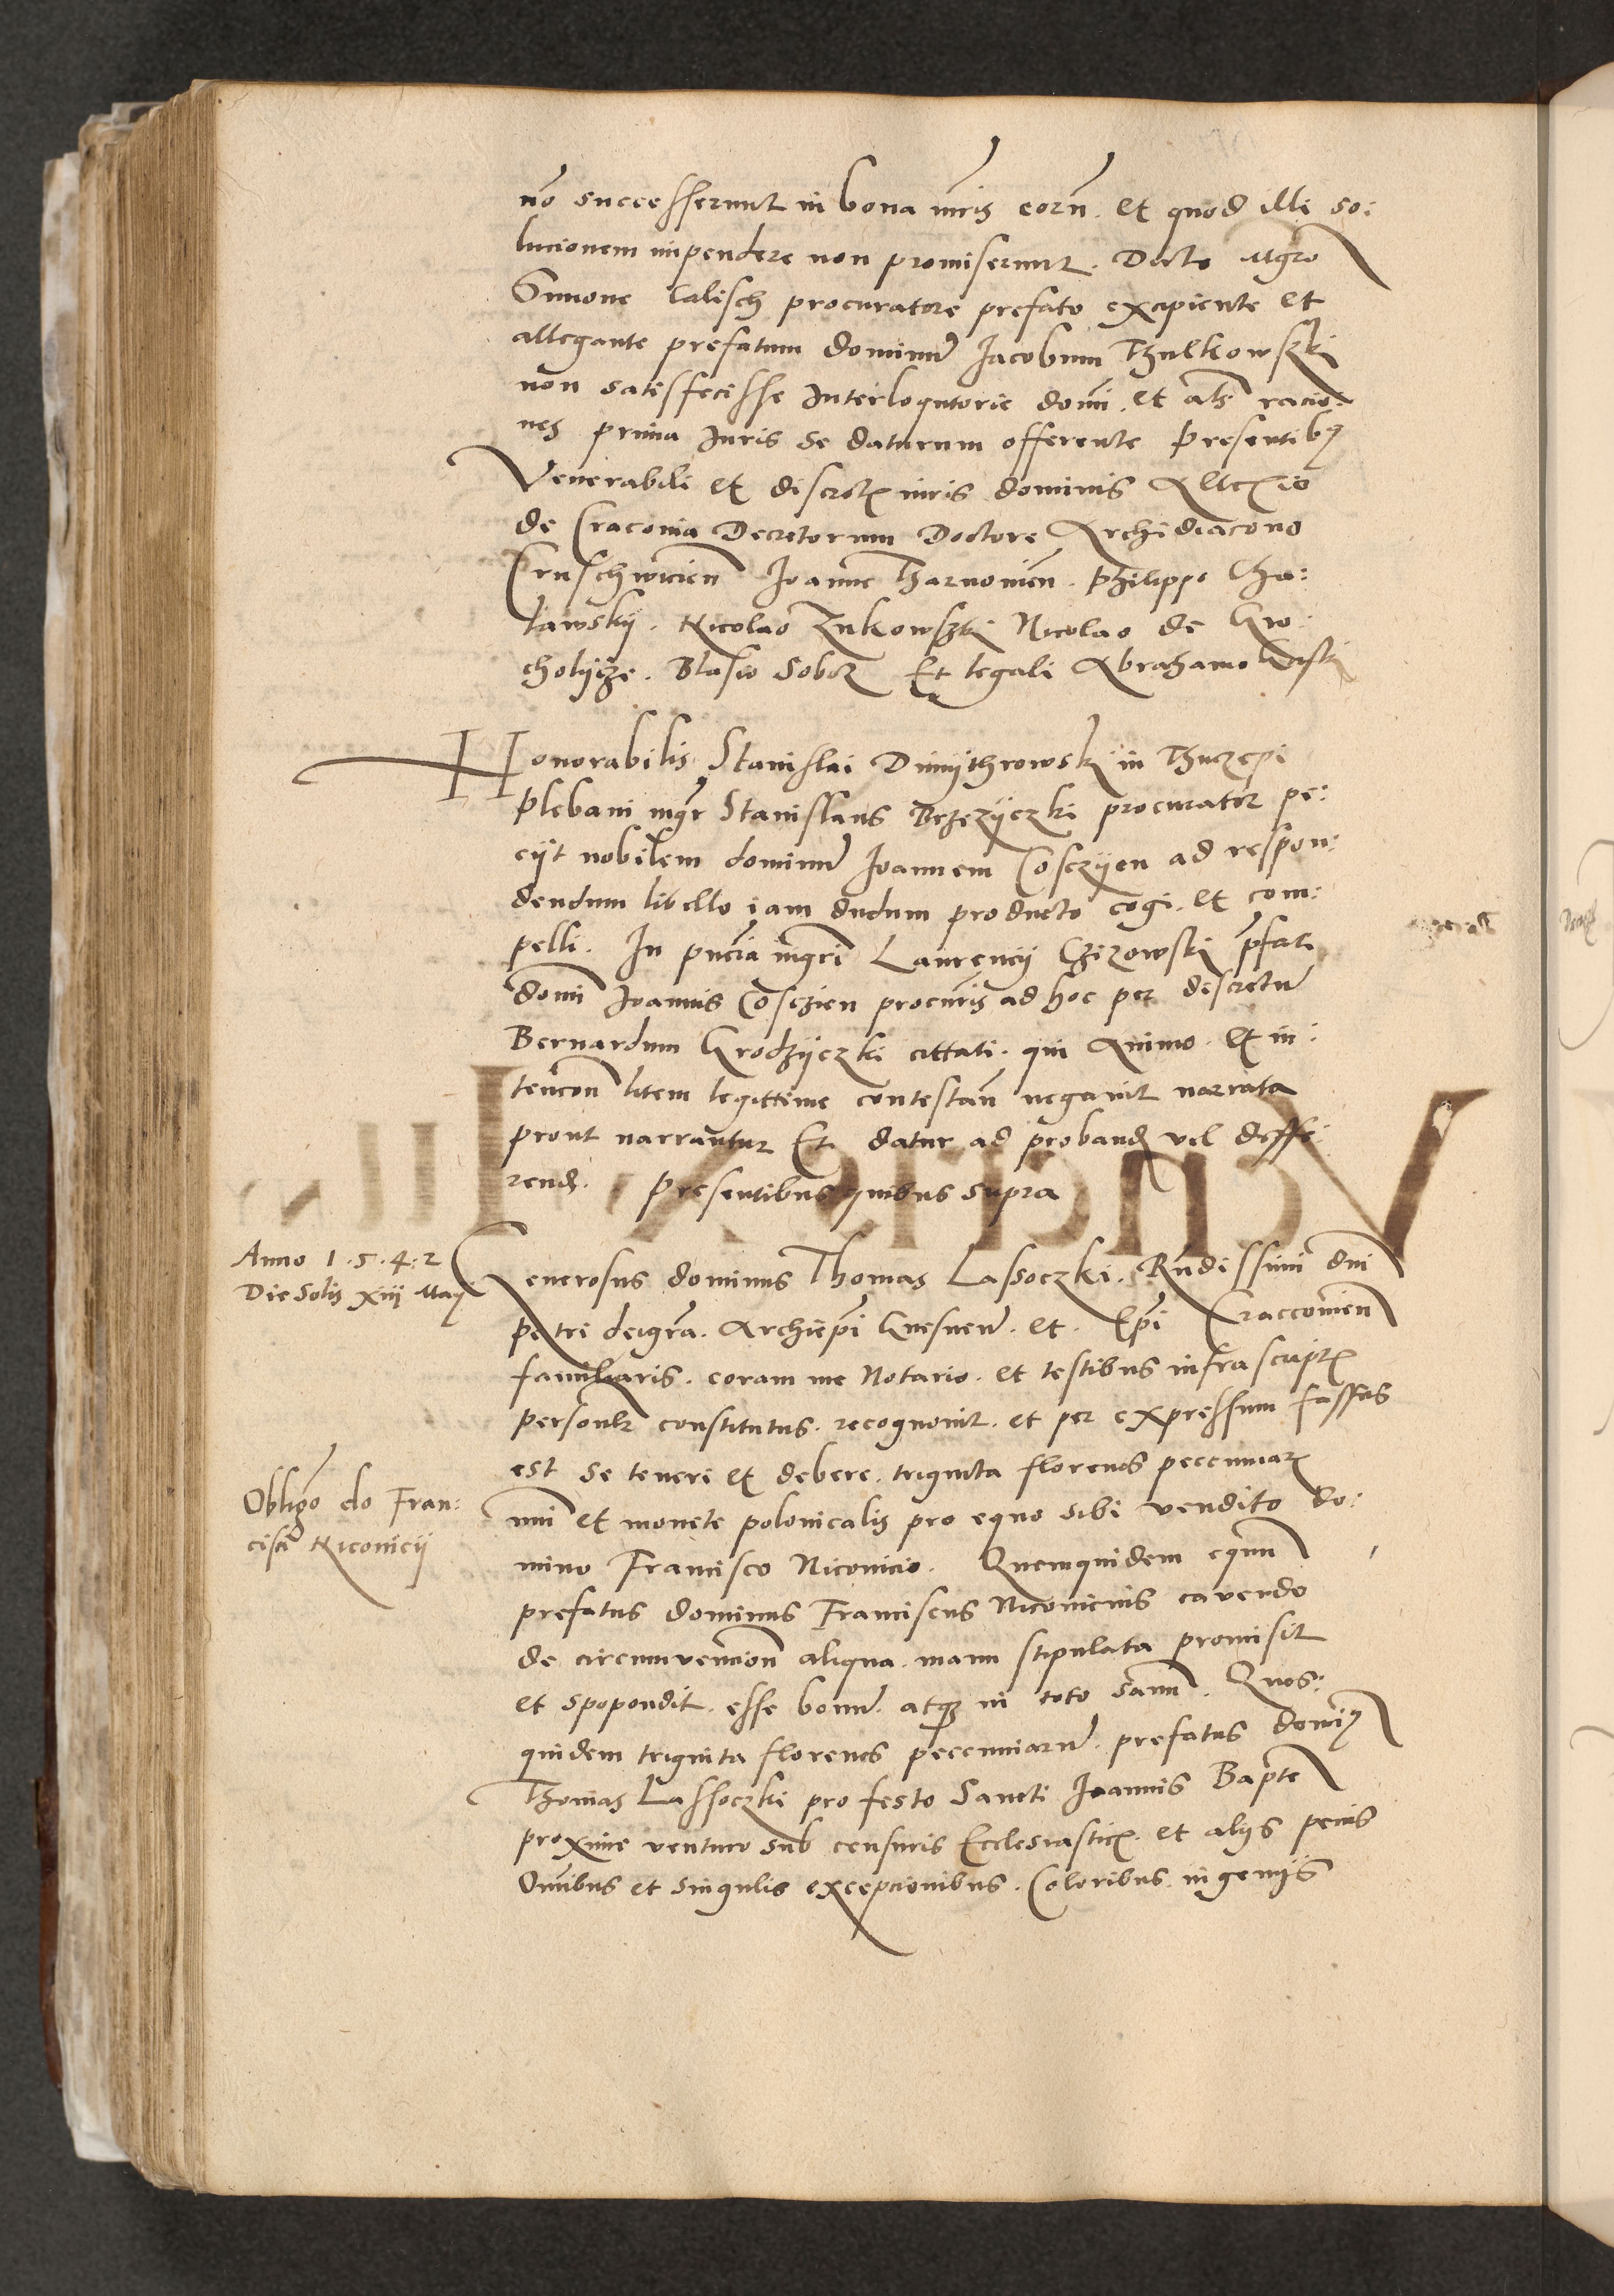 nō successerunt in bona mr̄is eorū. et quod illi so:
lucionem impendere non promiserunt. Dicto Mgrō
Simone Calisch procuratore prefato excipiente et
allegante prefatum dominū Iacobum Thulkowski
non satisfecisse Interloqutorie domi. et als racio:
nes prima Iuris se daturum offerente Presentibꝫ
Venerabili et discretꝭ viris dominis Allexio
de Craconia Decretorum Doctore Archidiacono
Cruschwicien̄ Ioanne Tharnowien̄. Philippo
Nicolao Zukowski Nicolao de Gro:
cholycze. Blasio Sobol Et legali Abrahamo
Honorabilis Stanislai Dimythrowski in Thuczępi
Plebani mgr̄ Stanislaus Brzezyczki procurator pe:
cijt nobilem dominū Ioannem Cosczyen ad respon:
dendum libello iam dudum producto cogi. et com:
pelli. In pn̄cia mgrī Laurencij Czizowski p̄fati
domī Ioannis Cosczien procur̄is ad hoc per discretū
Bernardum Grodzyczki cittati. qui Animo. et in:
tencōn litem legittime contestan̄ negauit narrata
prout narrantur Et datur ad probandꝭ vel deffe:
rendꝭ. Presentibus quibus supra
Anno 1.5.4:2
Die Solis xiiij May
Generosus dominus Thomas Lassoczki. Rn̄dissimi dn̄i
Petri dei gr̄a. Archiep̄i Gnesnen̄. et. Ep̄i Craccouien̄
familiaris. coram me Notario. et testibus infrascriptꝭ
personlr̄ constitutus. recognouit. et per expressum fassus
est se teneri et debere. triginta florenos peccuniarꝭ
Obligō do Fran:
cisci Niconicij
nuī et monete polonicalis pro equo sibi vendito do:
mino Francisco Niconicio. Quemquidem equū
prefatus dominus Franciscus Niconicius cauendo
de circumuencion̄ aliqua. manu stipulata promisit
et spopondit. esse bonū. atqꝫ in toto sanū. Quos:
quidem triginta florenos peccuniarū. prefatus domiꝫ
Thomas Lassoczki pro festo Sancti Ioannis Bapte
proxime venturo sub censuris Ecclesiasticꝭ. et alijs penis
Om̄ibus et singulis excepcionibus. Coloribus. ingenijs